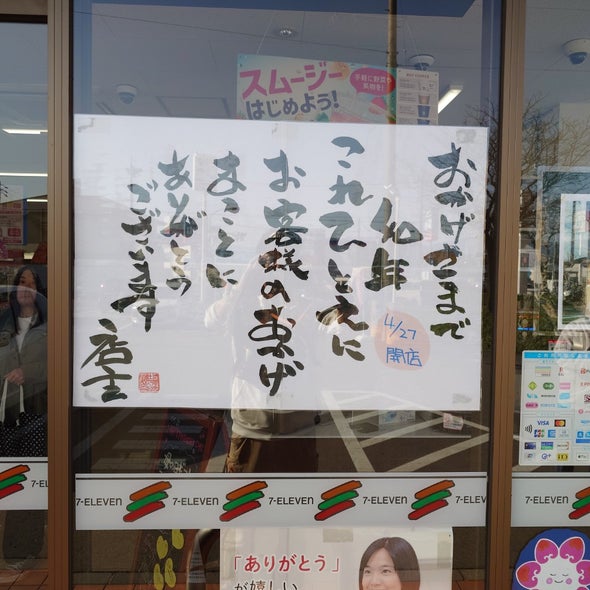 スムージー
はじめよう!
手軽に野菜や
果物を!
おかげさまで
九年
これひとえに
お客様のおかげ
まことに
ありがとう
ございます
店主
4/27
開店
7-ELEVEN
7-ELEVEN
7-ELEVEN
7-ELEVEN
7-ELEVEN
「ありがとう」
が嬉しい
VISA